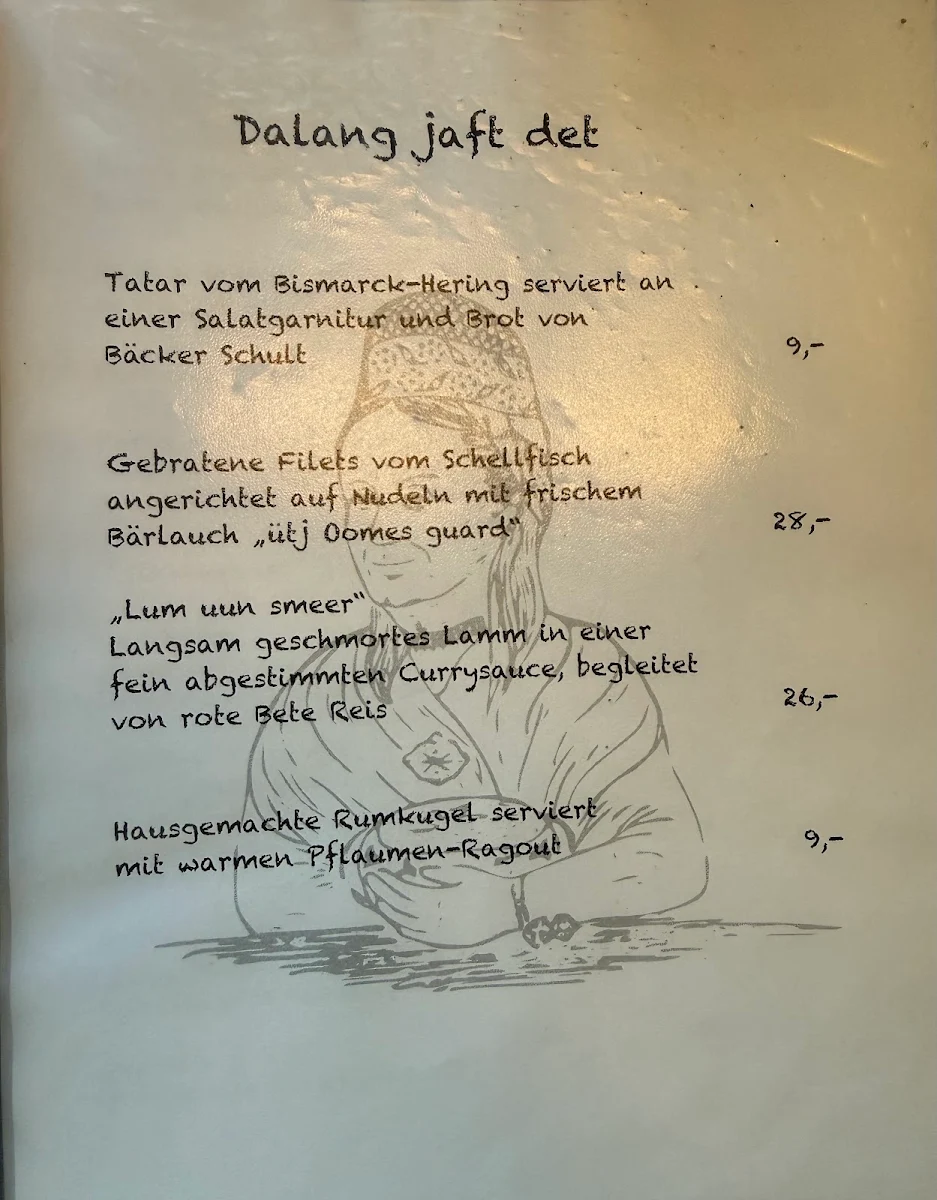 Dalang jaft det
Tatar vom Bismarck-Hering serviert an
einer Salatgarnitur und Brot von
Bäcker Schult 9,-
Gebratene Filets vom Schellfisch
angerichtet auf Nudeln mit frischem
Bärlauch „ütj Oomes guard“ 28,-
„Lum uun smeer“
Langsam geschmortes Lamm in einer
fein abgestimmten Currysauce, begleitet
von rote Bete Reis 26,-
Hausgemachte Rumkugel serviert
mit warmen Pflaumen-Ragout 9,-